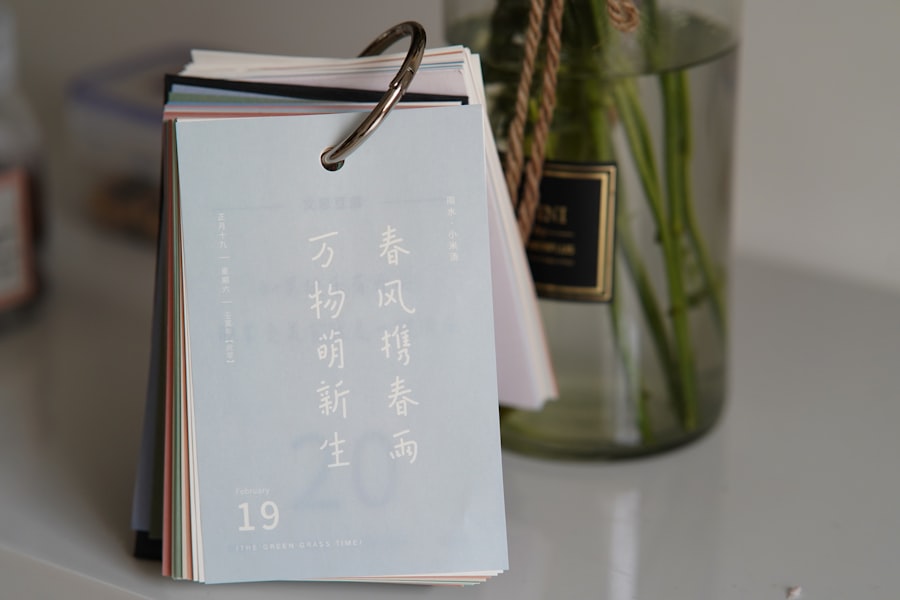 雨水·小米酒
春风携春雨
万物萌新生
正月十九 — 星期六 — 壬寅年
February
19
/THE GREEN GRASS TIME/
20